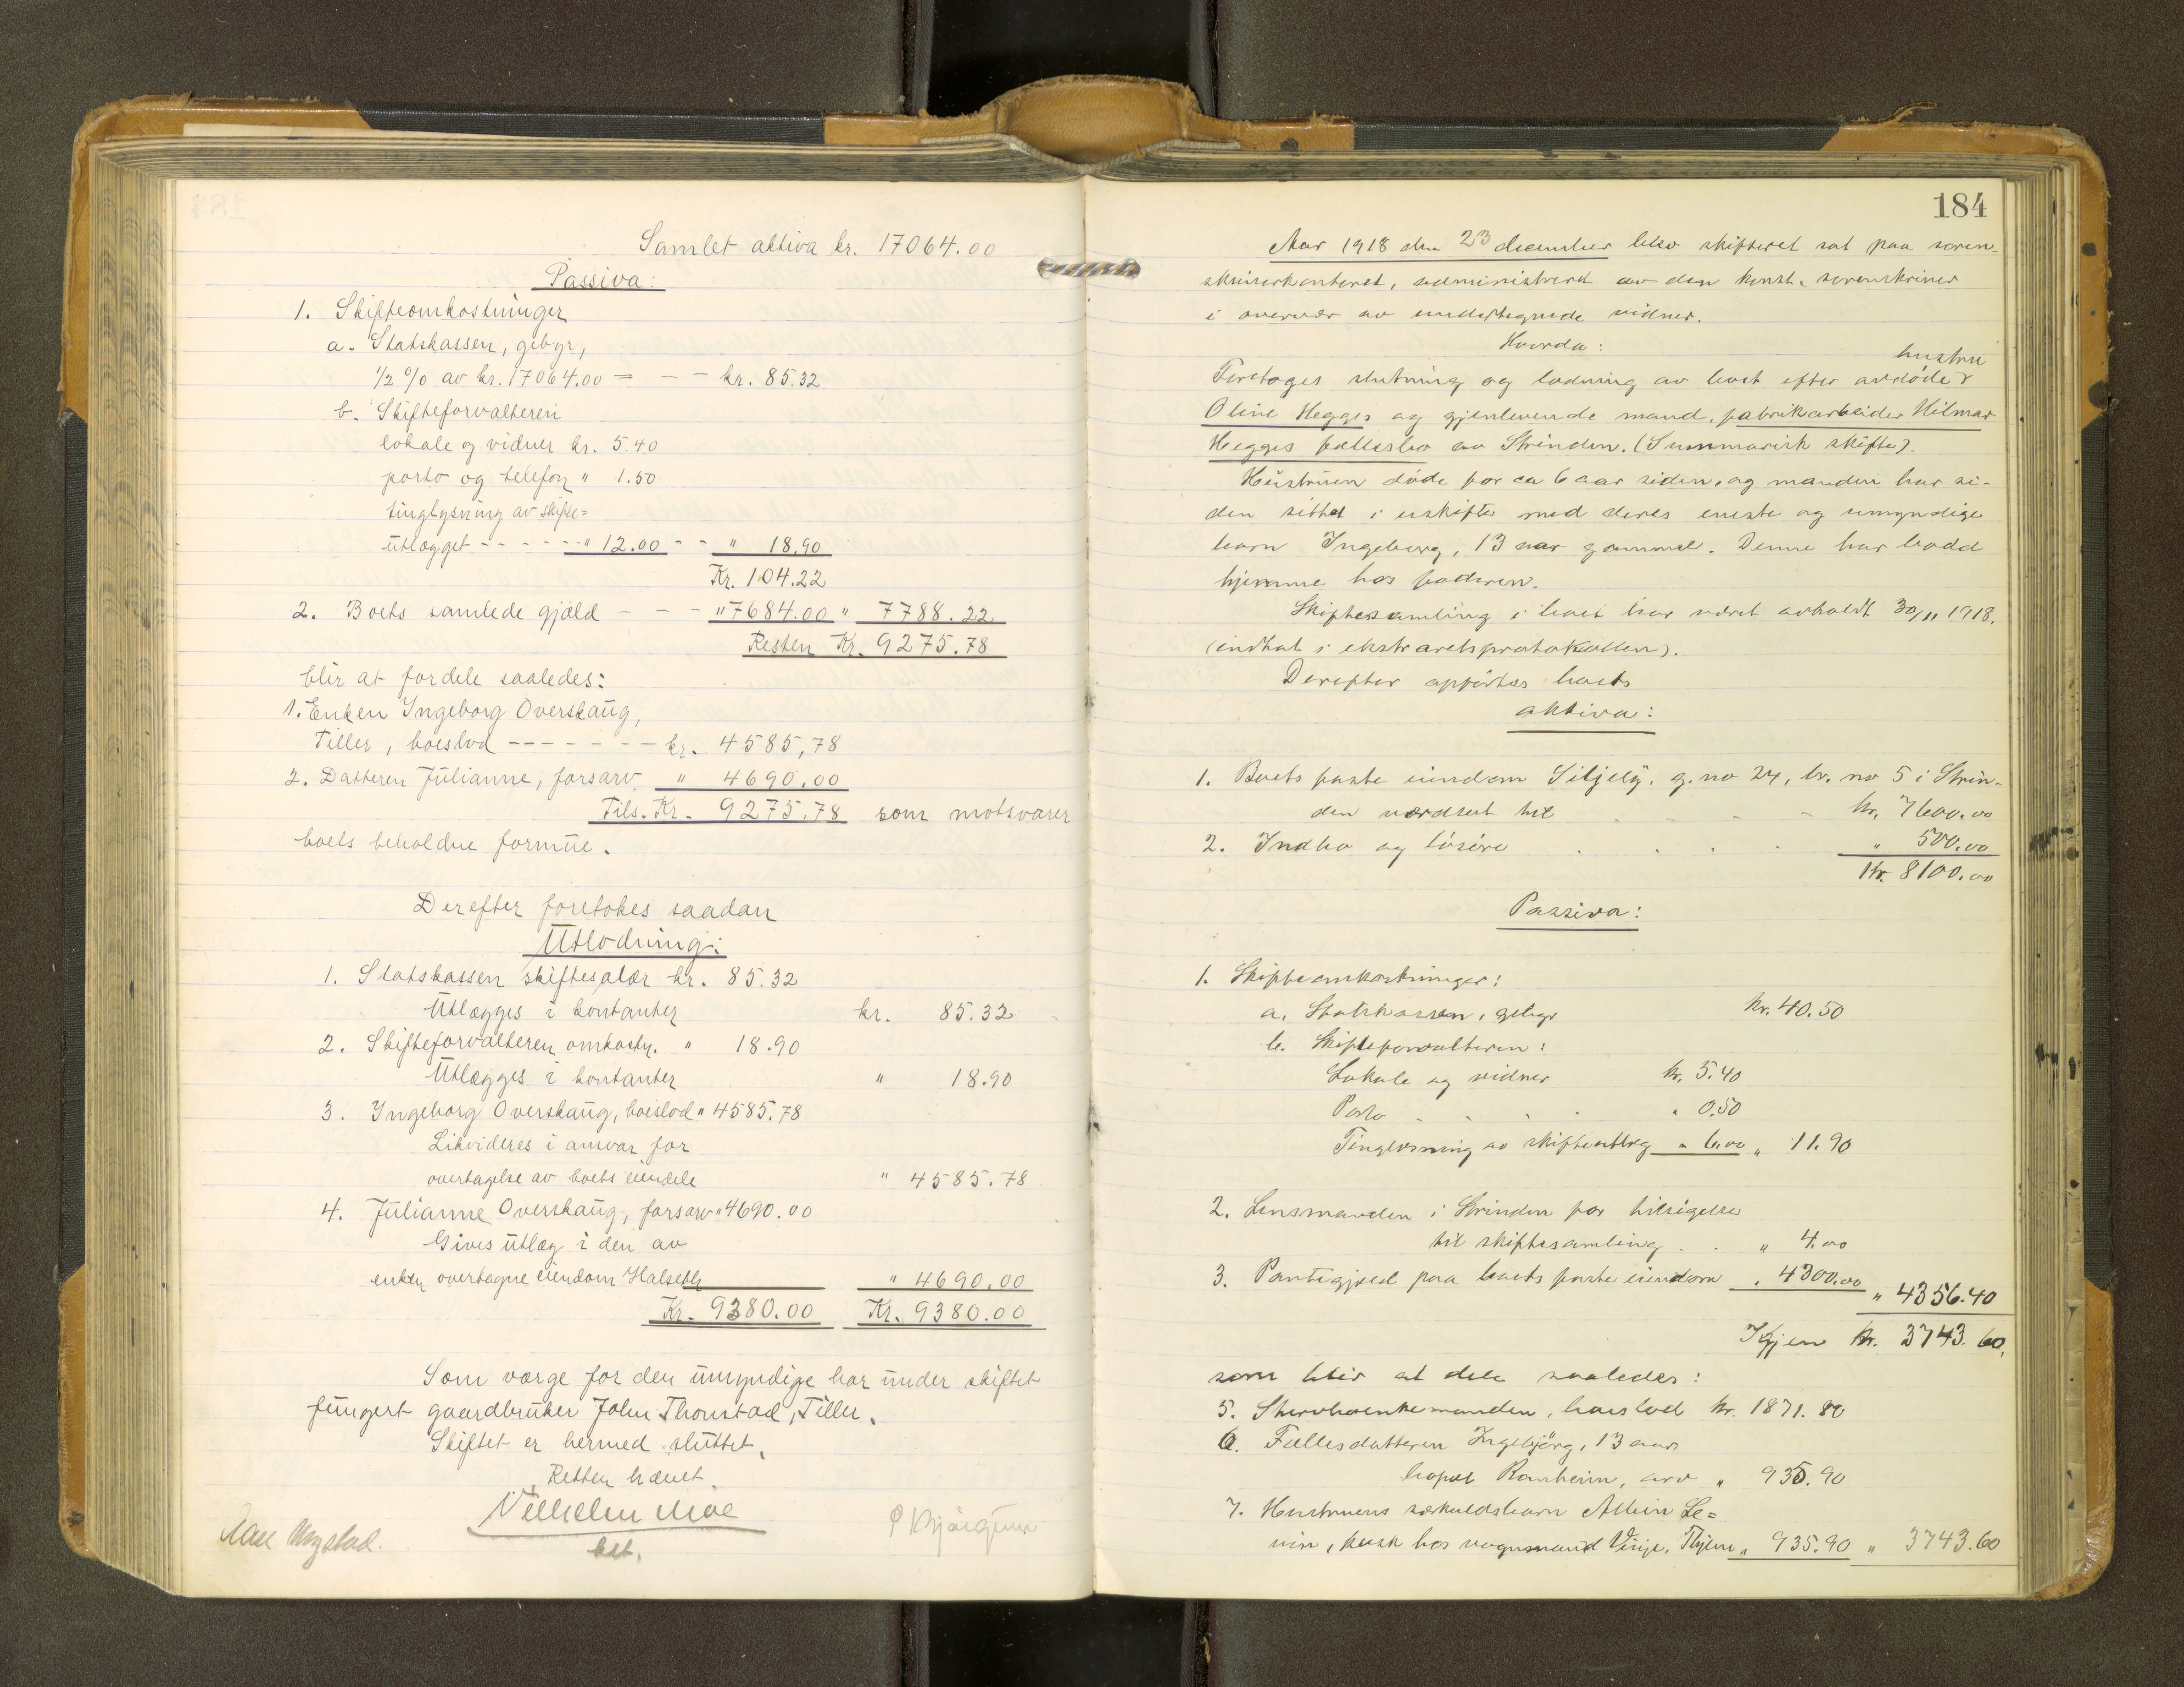 Samlet aktiva kr. 17064.00
Passiva:
1. Skifteomkostninger
a. Statskassen, gebyr,
1/2 % av kr. 17064.00 = - - kr. 85.32
b. Skifteforvalteren
lokale og vidner kr. 5.40
porto og telefon " 1.50
tinglysning av skifte=
utlægget - - - - - " 12.00 - - " 18.90
Kr. 104.22
2. Boets samlede gjæld - - - " 7684.00 " 7788.22
Resten Kr. 9275.78
blir at fordele saaledes:
1. Enken Ingeborg Overskaug,
Tiller, boeslod - - - - - - - kr. 4585,78
2. Datteren Julianne, farsarv " 4690.00
Tils. Kr. 9275.78 som motsvarer
boets beholdne formue.
Derefter foretokes saadan
Utlodning:
1. Statskassen skiftesalær kr. 85.32
Utlægges i kontanter kr. 85.32
2. Skifteforvalteren omkostn. " 18.90
Utlægges i kontanter " 18.90
3. Ingeborg Overskaug, boislod " 4585.78
Likvideres i ansvar for
overtagelse av boets eiendele " 4585.78
4. Julianne Overskaug, farsarv " 4690.00
Gives utlæg i den av
enken overtagne eiendom Halseth " 4690.00
Kr. 9380.00 Kr. 9380.00
Som værge for den umyndige har under skiftet
fungert gaardbruker John Thonstad, Tiller.
Skiftet er hermed sluttet.
Retten hævet.
Vilhelm Moe
kst.
184
Aar 1918 den 23 december blev skifteret sat paa soren-
skriverkontoret, administrert av den konst. sorenskriver
i overvær av undertegnede vidner.
Hvorda:
hustru
Foretoges slutning og lodning av boet efter avdøde
Oline Hegges og gjenlevende mand, fabrikarbeider Hilmar
Hegges fællesbo av Strinden. (Summarisk skifte).
Hustruen døde for ca 6 aar siden, og manden har si-
den sittet i uskifte med deres eneste og umyndige
barn Ingeborg, 13 aar gammel. Denne har bodd
hjemme hos faderen.
Skiftessamling i boet har været avholdt 30/11 1918.
(indtat i ekstraretsprotokollen).
Derefter opførtes boets
aktiva:
1. Boets faste eiendom Siljely, g. no 24, br. no 5 i Strin-
den værdsat til kr. 7600.00
2. Indbo og løsøre " 500.00
Kr. 8100.00
Passiva:
1. Skifteomkostninger:
a. Statskassen, gebyr kr. 40.50
b. Skifteforvalteren:
Lokale og vidner kr. 5.40
Porto " 0.50
Tinglæsning av skifteutlæg " 6.00 " 11.90
2. Lensmanden i Strinden for tilsigelse
til skiftesamling " 4.00
3. Pantegjæld paa boets faste eiendom " 4300.00
" 4356.40
Igjen kr. 3743.60,
som blir at dele saaledes:
5. Skervhoenkemanden, boeslod kr. 1871.80
6. Fællesdatteren Ingebjørg, 13 aar
bopæl Ranheim, arv " 935.90
7. Hustruens særkuldsbarn Albin Le=
vin, kusk hos vognmand Vinje, Thjem " 935.90 " 3743.60